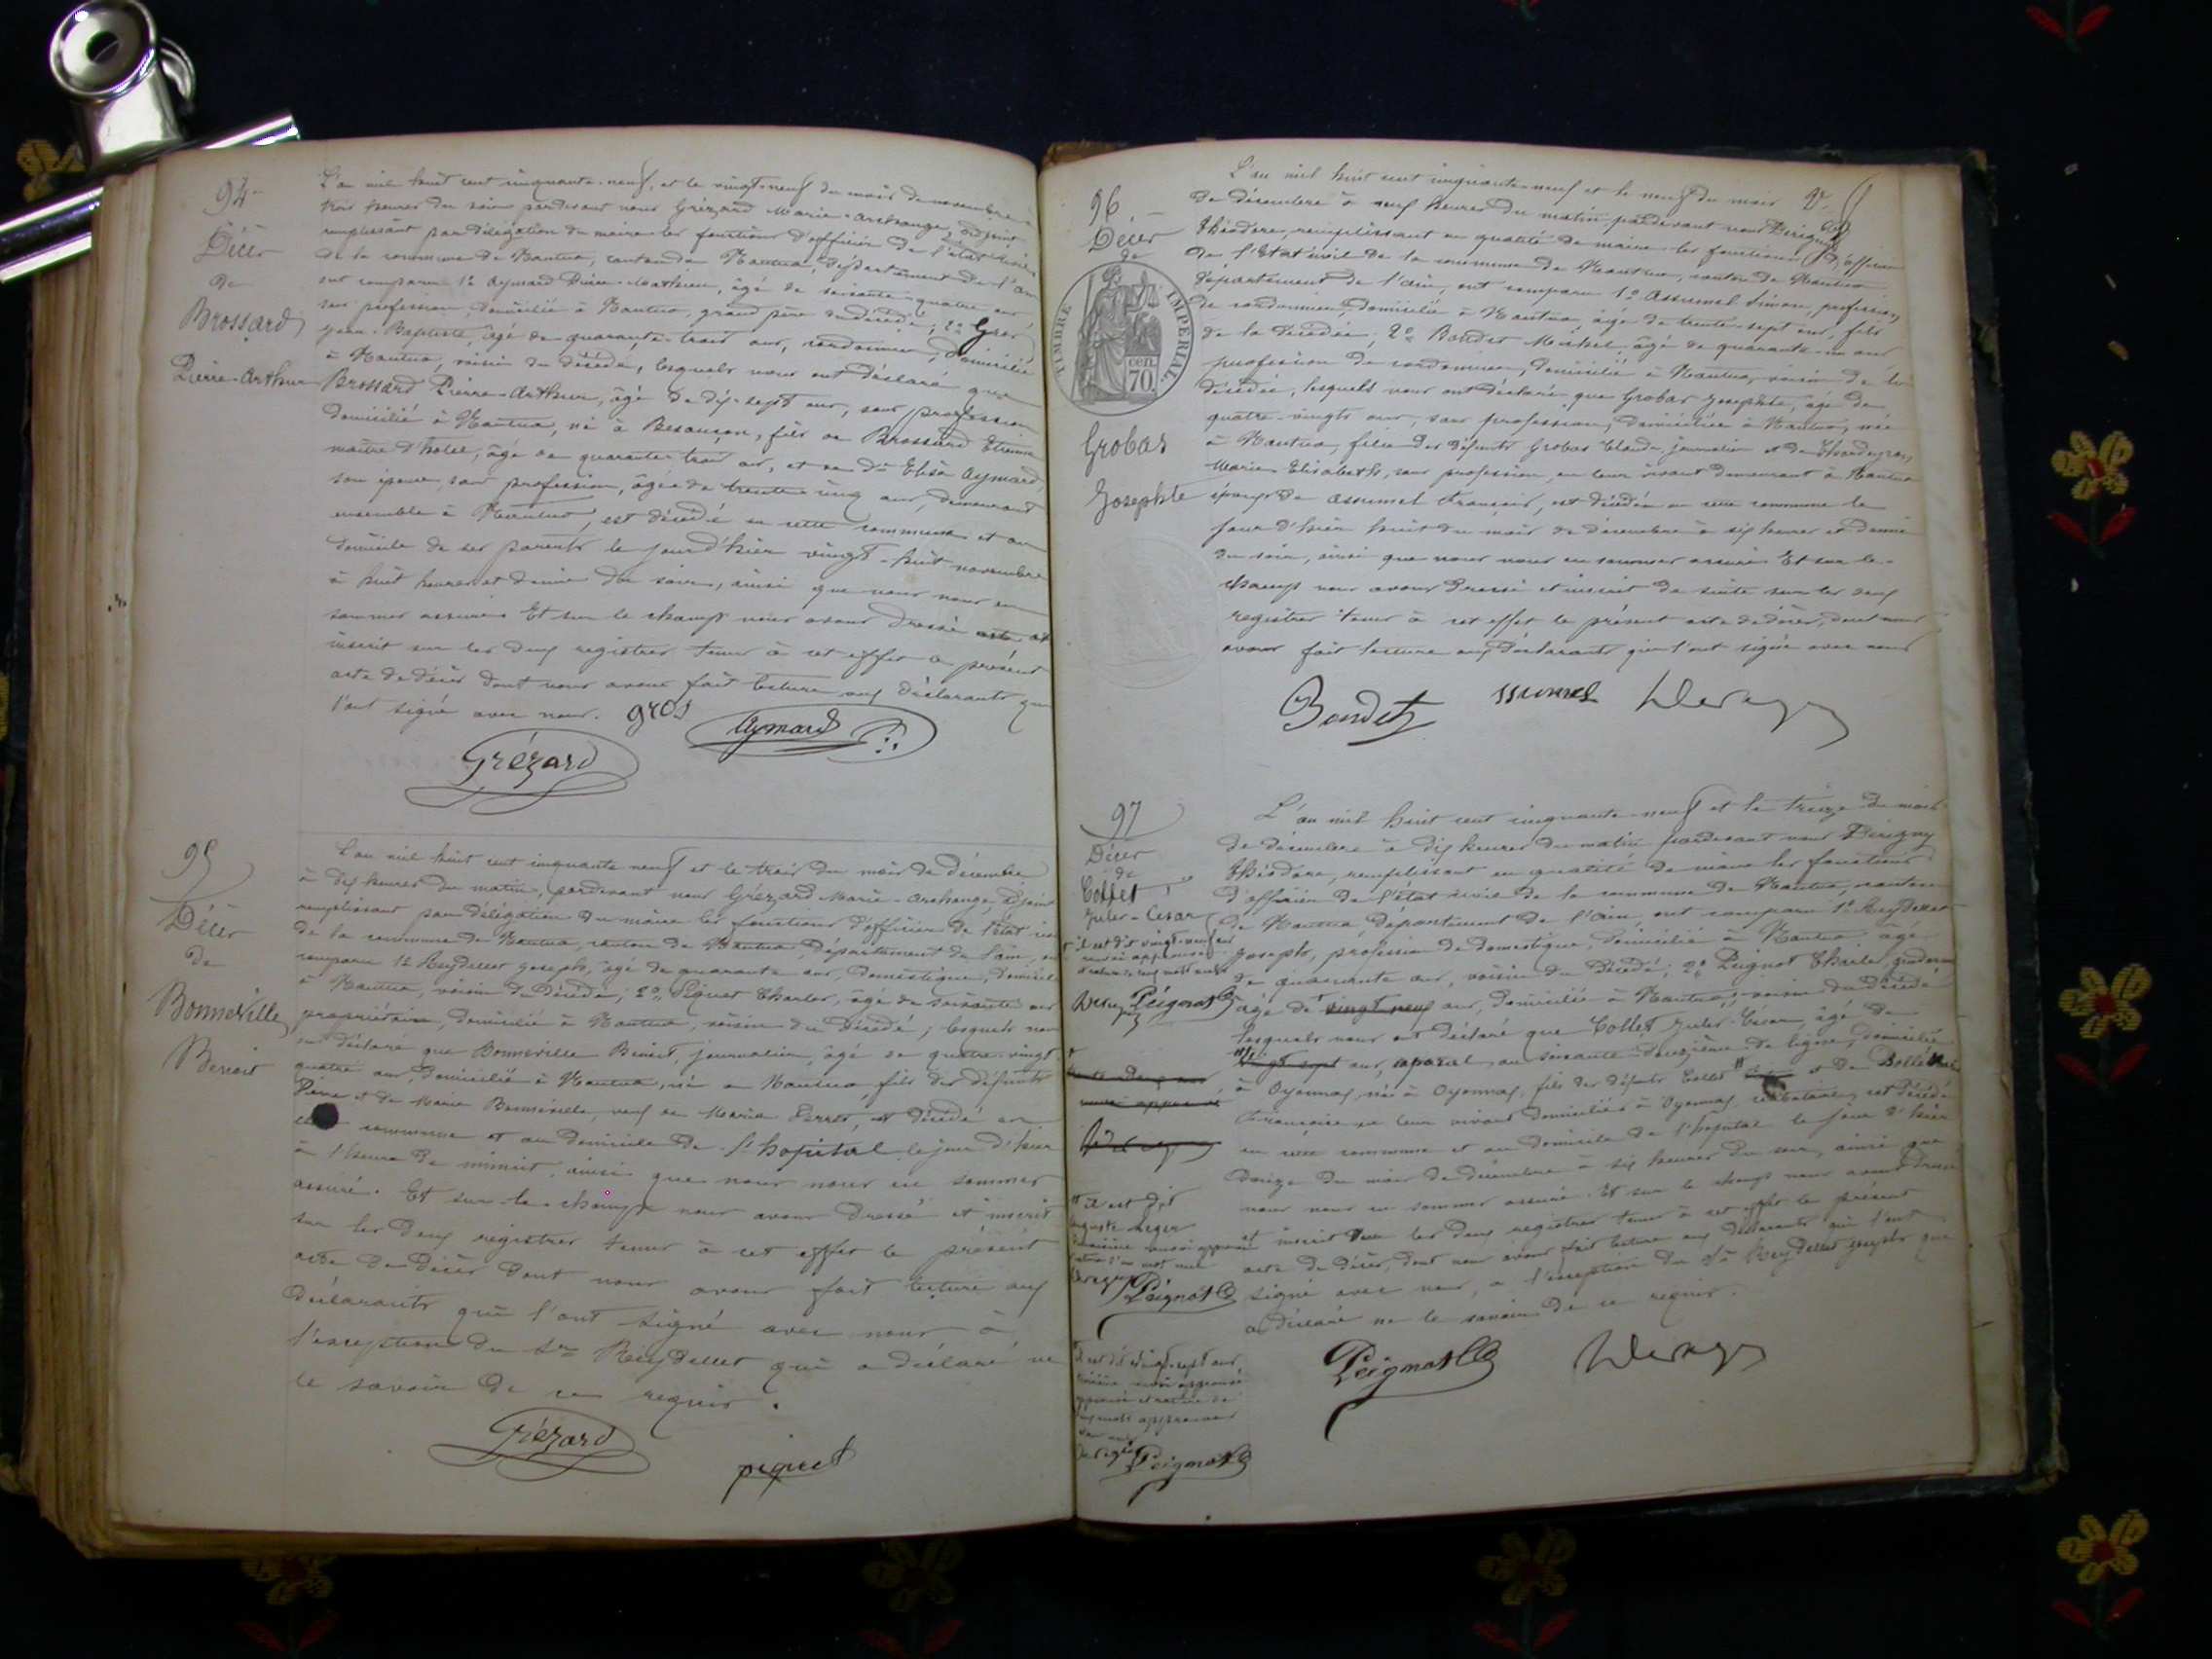 94
Décès
de
Brossard
Pierre-Arthur
L'an mil huit cent cinquante-neuf, et le vingt-neuf du mois de novembre
trois heures du soir pardevant nous Grézard Marie-Archange, adjoint
remplissant par délégation du maire les fonctions d'officier de l'état civil
de la commune de Nantua, canton de Nantua, département de l'Ain
ont comparu 1º Aymard Pierre-Mathieu, âgé de soixante-quatre ans
sans profession, domicilié à Nantua, grand père du décédé; 2º Gros
Jean-Baptiste, âgé de quarante-trois ans, cordonnier, domicilié
à Nantua, voisin du décédé, lesquels nous ont déclaré que
Brossard Pierre-Arthur, âgé de dix-sept ans, sans profession
domicilié à Nantua, né à Besançon, fils de Brossard Etienne
maître d'hôtel, âgé de quarante trois ans, et de de Elisa Aymard,
son épouse, sans profession, âgée de trente cinq ans, demeurant
ensemble à Nantua, est décédé en cette commune et au
domicile de ses parents le jour d'hier vingt-huit novembre
à huit heures et demie du soir, ainsi que nous nous en
sommes assuré. Et sur le champ nous avons dressé acte et
inscrit sur les deux registres tenus à cet effet le présent
acte de décès dont nous avons fait lecture aux déclarants qui
l'ont signé avec nous. gros
Aymard
Grézard
95
Décès
de
Bonneville
Benoit
L'an mil huit cent cinquante neuf et le trois du mois de décembre
à dix heures du matin, pardevant nous Grézard Marie-Archange, adjoint
remplissant par délégation du maire les fonctions d'officier de l'état civil
de la commune de Nantua, canton de Nantua, département de l'Ain, ont
comparu 1º Reydellet Joseph, âgé de quarante ans, domestique, domicilié
à Nantua, voisin du décédé; 2º Piquet Charles, âgé de soixante ans
propriétaire, domicilié à Nantua, voisin du décédé; lesquels nous
ont déclaré que Bonneville Benoit, journalier, âgé de quatre-vingt
quatre ans, domicilié à Nantua, né à Nantua, fils des défunts
Pierre et de Marie Bonneville, veuf de Marie Perret, est décédé en
commune et au domicile de l'hopital le jour d'hier
à l'heure de minuit, ainsi que nous nous en sommes
assuré. Et sur-le-champ nous avons dressé et inscrit
sur les deux registres tenus à cet effet le présent
acte de décès dont nous avons fait lecture aux
déclarants qui l'ont signé avec nous à
l'exception du Sr Reydellet qui a déclaré ne
le savoir de ce requis.
Grézard
piquet
96
Décès
de
TIMBRE IMPERIAL
cen.
70.
Grobas
Josephte
L'an mil huit cent cinquante-neuf et le neuf du mois
de décembre à neuf heures du matin pardevant nous Dérigny
Théodore, remplissant en qualité de maire les fonctions d'officier
de l'Etat civil de la commune de Nantua, canton de Nantua
département de l'Ain, ont comparu 1º Assumel Simon, profession
de cordonnier, domicilié à Nantua âgé de trente-sept ans, fils
de la décédée; 2º Bondet Michel, âgé de quarante-un ans
profession de cordonnier, domicilié à Nantua, voisin de la
décédée, lesquels nous ont déclaré que Grobas Josephte, âgé de
quatre-vingts ans, sans profession, domiciliée à Nantua, née
à Nantua, fille des défunts Grobas Claude, journalier et de
Marie Elisabeth, sans profession, en leur vivant demeurant à Nantua
épouse de Assumel François, est décédée en cette commune le
jour d'hier huit du mois de décembre à six heures et demie
du soir, ainsi que nous nous en sommes assuré. Et sur le-
champ nous avons dressé et inscrit de suite sur les deux
registres tenus à cet effet le présent acte de décès, dont nous
avons fait lecture aux déclarants qui l'ont signé avec nous
Bondet
97
Décès
de
Collet
Jules-César
L'an mil huit cent cinquante-neuf et le treize du mois
de décembre à dix heures du matin pardevant nous Dérigny
Théodore, remplissant en qualité de maire les fonctions
d'officier de l'état civil de la commune de Nantua, canton
de Nantua, département de l'Ain, ont comparu 1º Reydellet
Joseph, profession de domestique, domicilié à Nantua âgé
de quarante ans, voisin du décédé; 2º Peignot Charles,
âgé de vingt neuf ans, domicilié à Nantua, voisin du décédé
lesquels nous ont déclaré que Collet Jules-César, âgé de
vingt-sept ans, caporal au soixante-douzième de ligne, domicilié
à Oyonnax, né à Oyonnax, fils des défunts Collet et de
Françoise en leur vivant domiciliés à Oyonnax, célibataire, est décédé
en cette commune et au domicile de l'hopital le jour d'hier
douze du mois de décembre à six heures du soir, ainsi que
nous nous en sommes assuré. Et sur le champ nous avons dressé
et inscrit sur les deux registres tenus à cet effet le présent
acte de décès, dont nous avons fait lecture aux déclarants qui l'ont
signé avec nous, à l'exception du Sr Reydellet Joseph qui
a déclaré ne le savoir de ce requis.
Peignot
il est dit
Auguste Léger
Peignot
il est dit vingt-sept ans
Peignot
Peignot